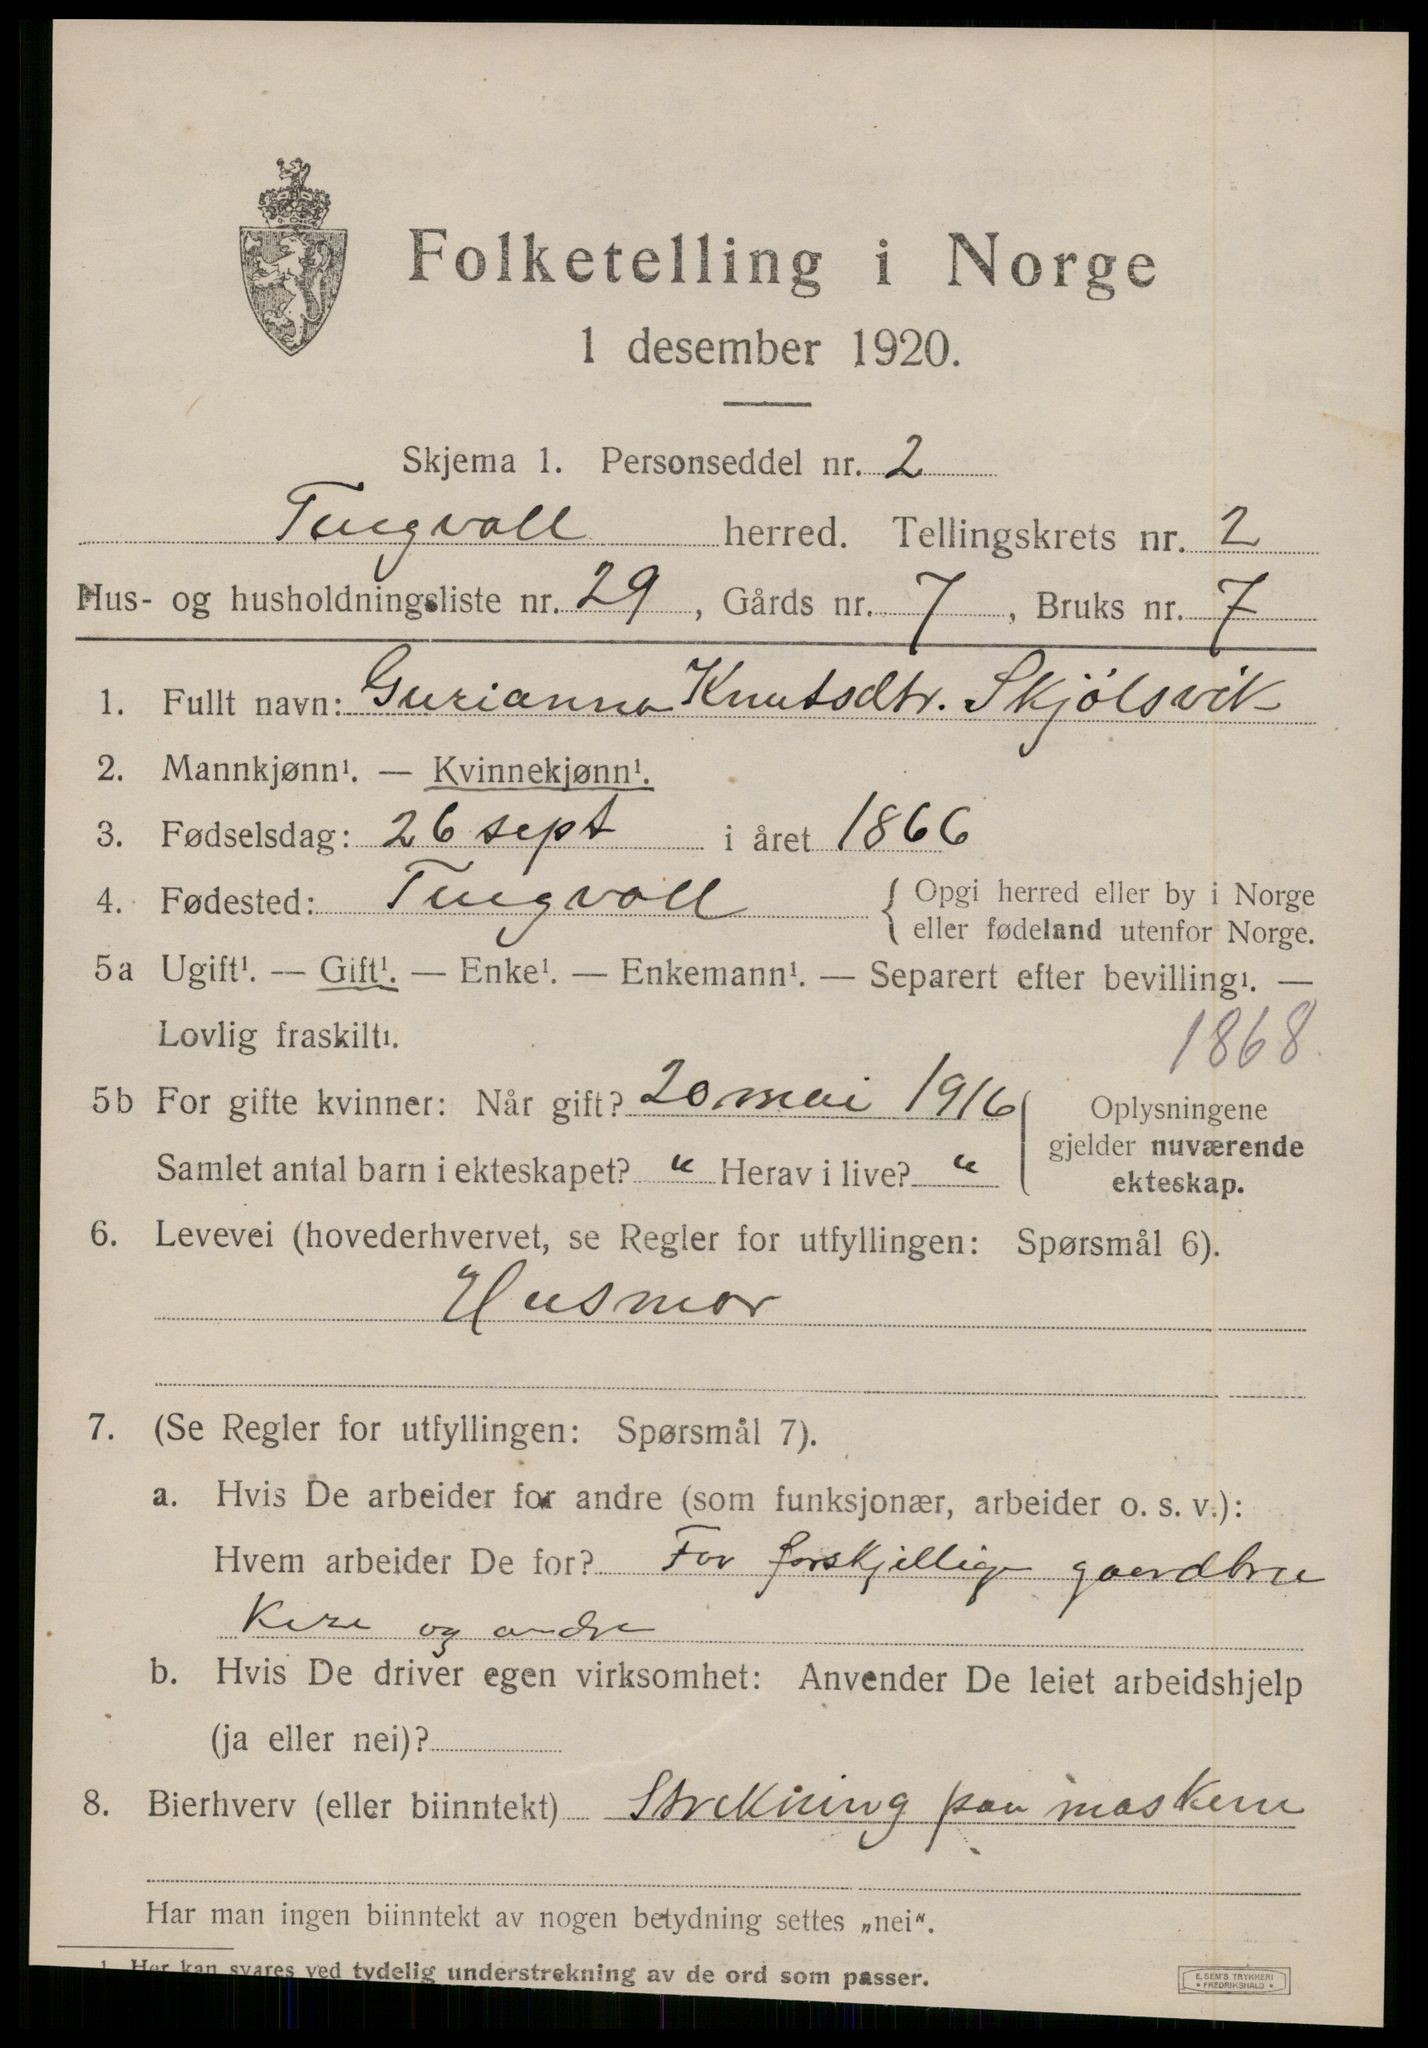 Folketelling i Norge
1 desember 1920.
Skjema 1. Personseddel nr. 2
Tingvoll herred. Tellingskrets nr. 2
Hus- og husholdningsliste nr. 29, Gårds nr. 7, Bruks nr. 7
1. Fullt navn: Gurianna Knutsdtr. Skjölsvik
2. Mannkjønn¹. — Kvinnekjønn¹.
3. Fødselsdag: 26 sept i året 1866
4. Fødested: Tingvoll { Opgi herred eller by i Norge
eller fødeland utenfor Norge.
5a Ugift¹. — Gift¹. — Enke¹. — Enkemann¹. — Separert efter bevilling¹. —
Lovlig fraskilt¹.
1868
5b For gifte kvinner: Når gift? 20 mai 1916
Samlet antal barn i ekteskapet? " Herav i live? "
{ Oplysningene
gjelder nuværende
ekteskap.
6. Levevei (hovederhvervet, se Regler for utfyllingen: Spørsmål 6).
Husmor
7. (Se Regler for utfyllingen: Spørsmål 7).
a. Hvis De arbeider for andre (som funksjonær, arbeider o. s. v.):
Hvem arbeider De for? For forskjellige gaardbru
kere og andre
b. Hvis De driver egen virksomhet: Anvender De leiet arbeidshjelp
(ja eller nei)?
8. Bierhverv (eller biinntekt) Strekning paa maskene
Har man ingen biinntekt av nogen betydning settes „nei“.
1 Her kan svares ved tydelig understrekning av de ord som passer.
E. SEM'S TRYKKERI
* FREDRIKSHALD *